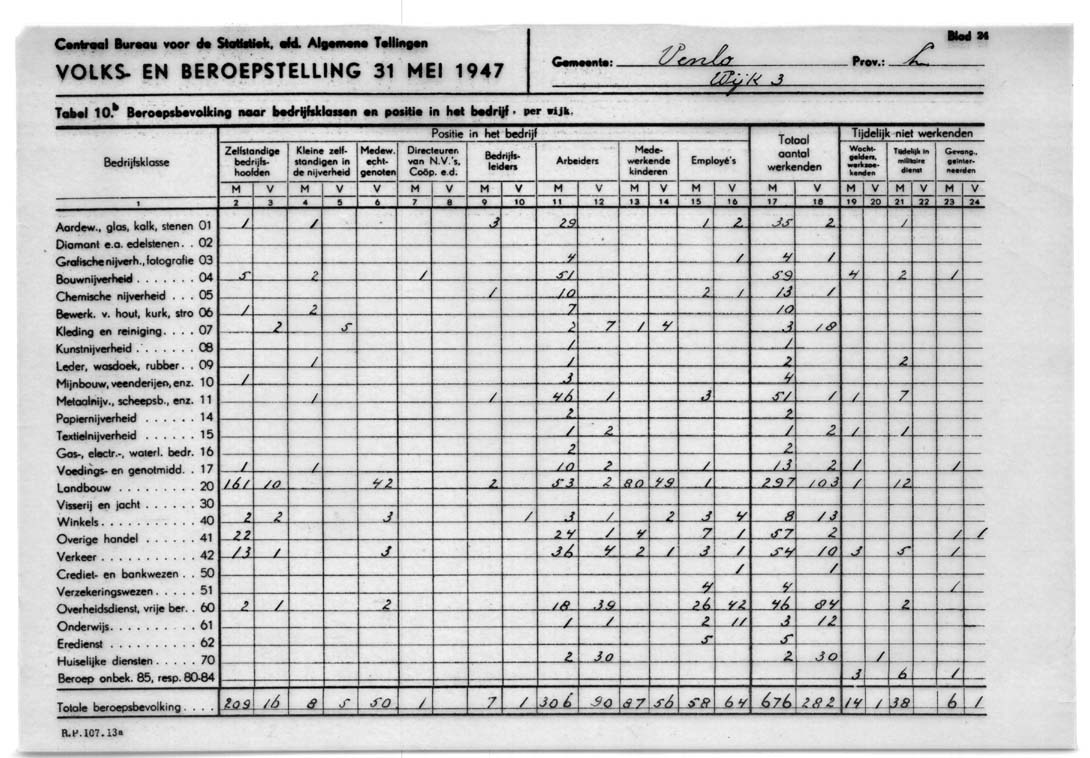 Centraal Bureau voor de Statistiek, afd. Algemene Tellingen
VOLKS- EN BEROEPSTELLING 31 MEI 1947
Gemeente: Venlo Prov.: L
Wijk 3
Blad 24
Tabel 10.b Beroepsbevolking naar bedrijfsklassen en positie in het bedrijf, per wijk.
Bedrijfsklasse
Positie in het bedrijf
Zelfstandige bedrijfs-hoofden
Kleine zelf-standigen in de nijverheid
Medew. echt-genoten
Directeuren van N.V.'s, Coöp. e.d.
Bedrijfs-leiders
Arbeiders
Mede-werkende kinderen
Employé's
Totaal aantal werkenden
Tijdelijk niet werkenden
Wacht-gelders, werkzoe-kenden
Tijdelijk in militaire dienst
Gevang., geïnter-neerden
M V M V V M V M V M V M V M V M V M V M V M V
1 2 3 4 5 6 7 8 9 10 11 12 13 14 15 16 17 18 19 20 21 22 23 24
Aardew., glas, kalk, stenen 01 1 1 3 29 1 2 35 2 1
Diamant e.a. edelstenen. . 02
Grafische nijverh., fotografie 03 4 1 4 1
Bouwnijverheid . . . . . . 04 5 2 1 51 59 4 2 1
Chemische nijverheid . . . 05 1 10 2 1 13 1
Bewerk. v. hout, kurk, stro 06 1 2 7 10
Kleding en reiniging. . . . 07 2 5 2 7 1 4 3 18
Kunstnijverheid . . . . . . 08 1 1
Leder, wasdoek, rubber. . 09 1 1 2 2
Mijnbouw, veenderijen, enz. 10 1 3 4
Metaalnijv., scheepsb., enz. 11 1 1 46 1 3 51 1 1 7
Papiernijverheid . . . . . 14 2 2
Textielnijverheid . . . . . 15 1 2 1 2 1 1
Gas-, electr.-, waterl. bedr. 16 2 2
Voedings- en genotmidd. . 17 1 1 10 2 1 13 2 1 1
Landbouw . . . . . . . . 20 161 10 42 2 53 2 80 49 1 297 103 1 12
Visserij en jacht . . . . . 30
Winkels. . . . . . . . . . 40 2 2 3 1 3 1 2 3 4 8 13
Overige handel . . . . . . 41 22 24 1 4 7 1 57 2 1 1
Verkeer . . . . . . . . . 42 13 1 3 36 4 2 1 3 1 54 10 3 5 1
Crediet- en bankwezen . . 50 1 1
Verzekeringswezen. . . . . 51 4 4 1
Overheidsdienst, vrije ber. . 60 2 1 2 18 39 26 42 46 84 2
Onderwijs. . . . . . . . . 61 1 1 2 11 3 12
Eredienst . . . . . . . . 62 5 5
Huiselijke diensten . . . . . 70 2 30 2 30 1
Beroep onbek. 85, resp. 80-84 3 6 1
Totale beroepsbevolking . . . . 209 16 8 5 50 1 7 1 306 90 87 56 58 64 676 282 14 1 38 6 1
R.P.107.13a